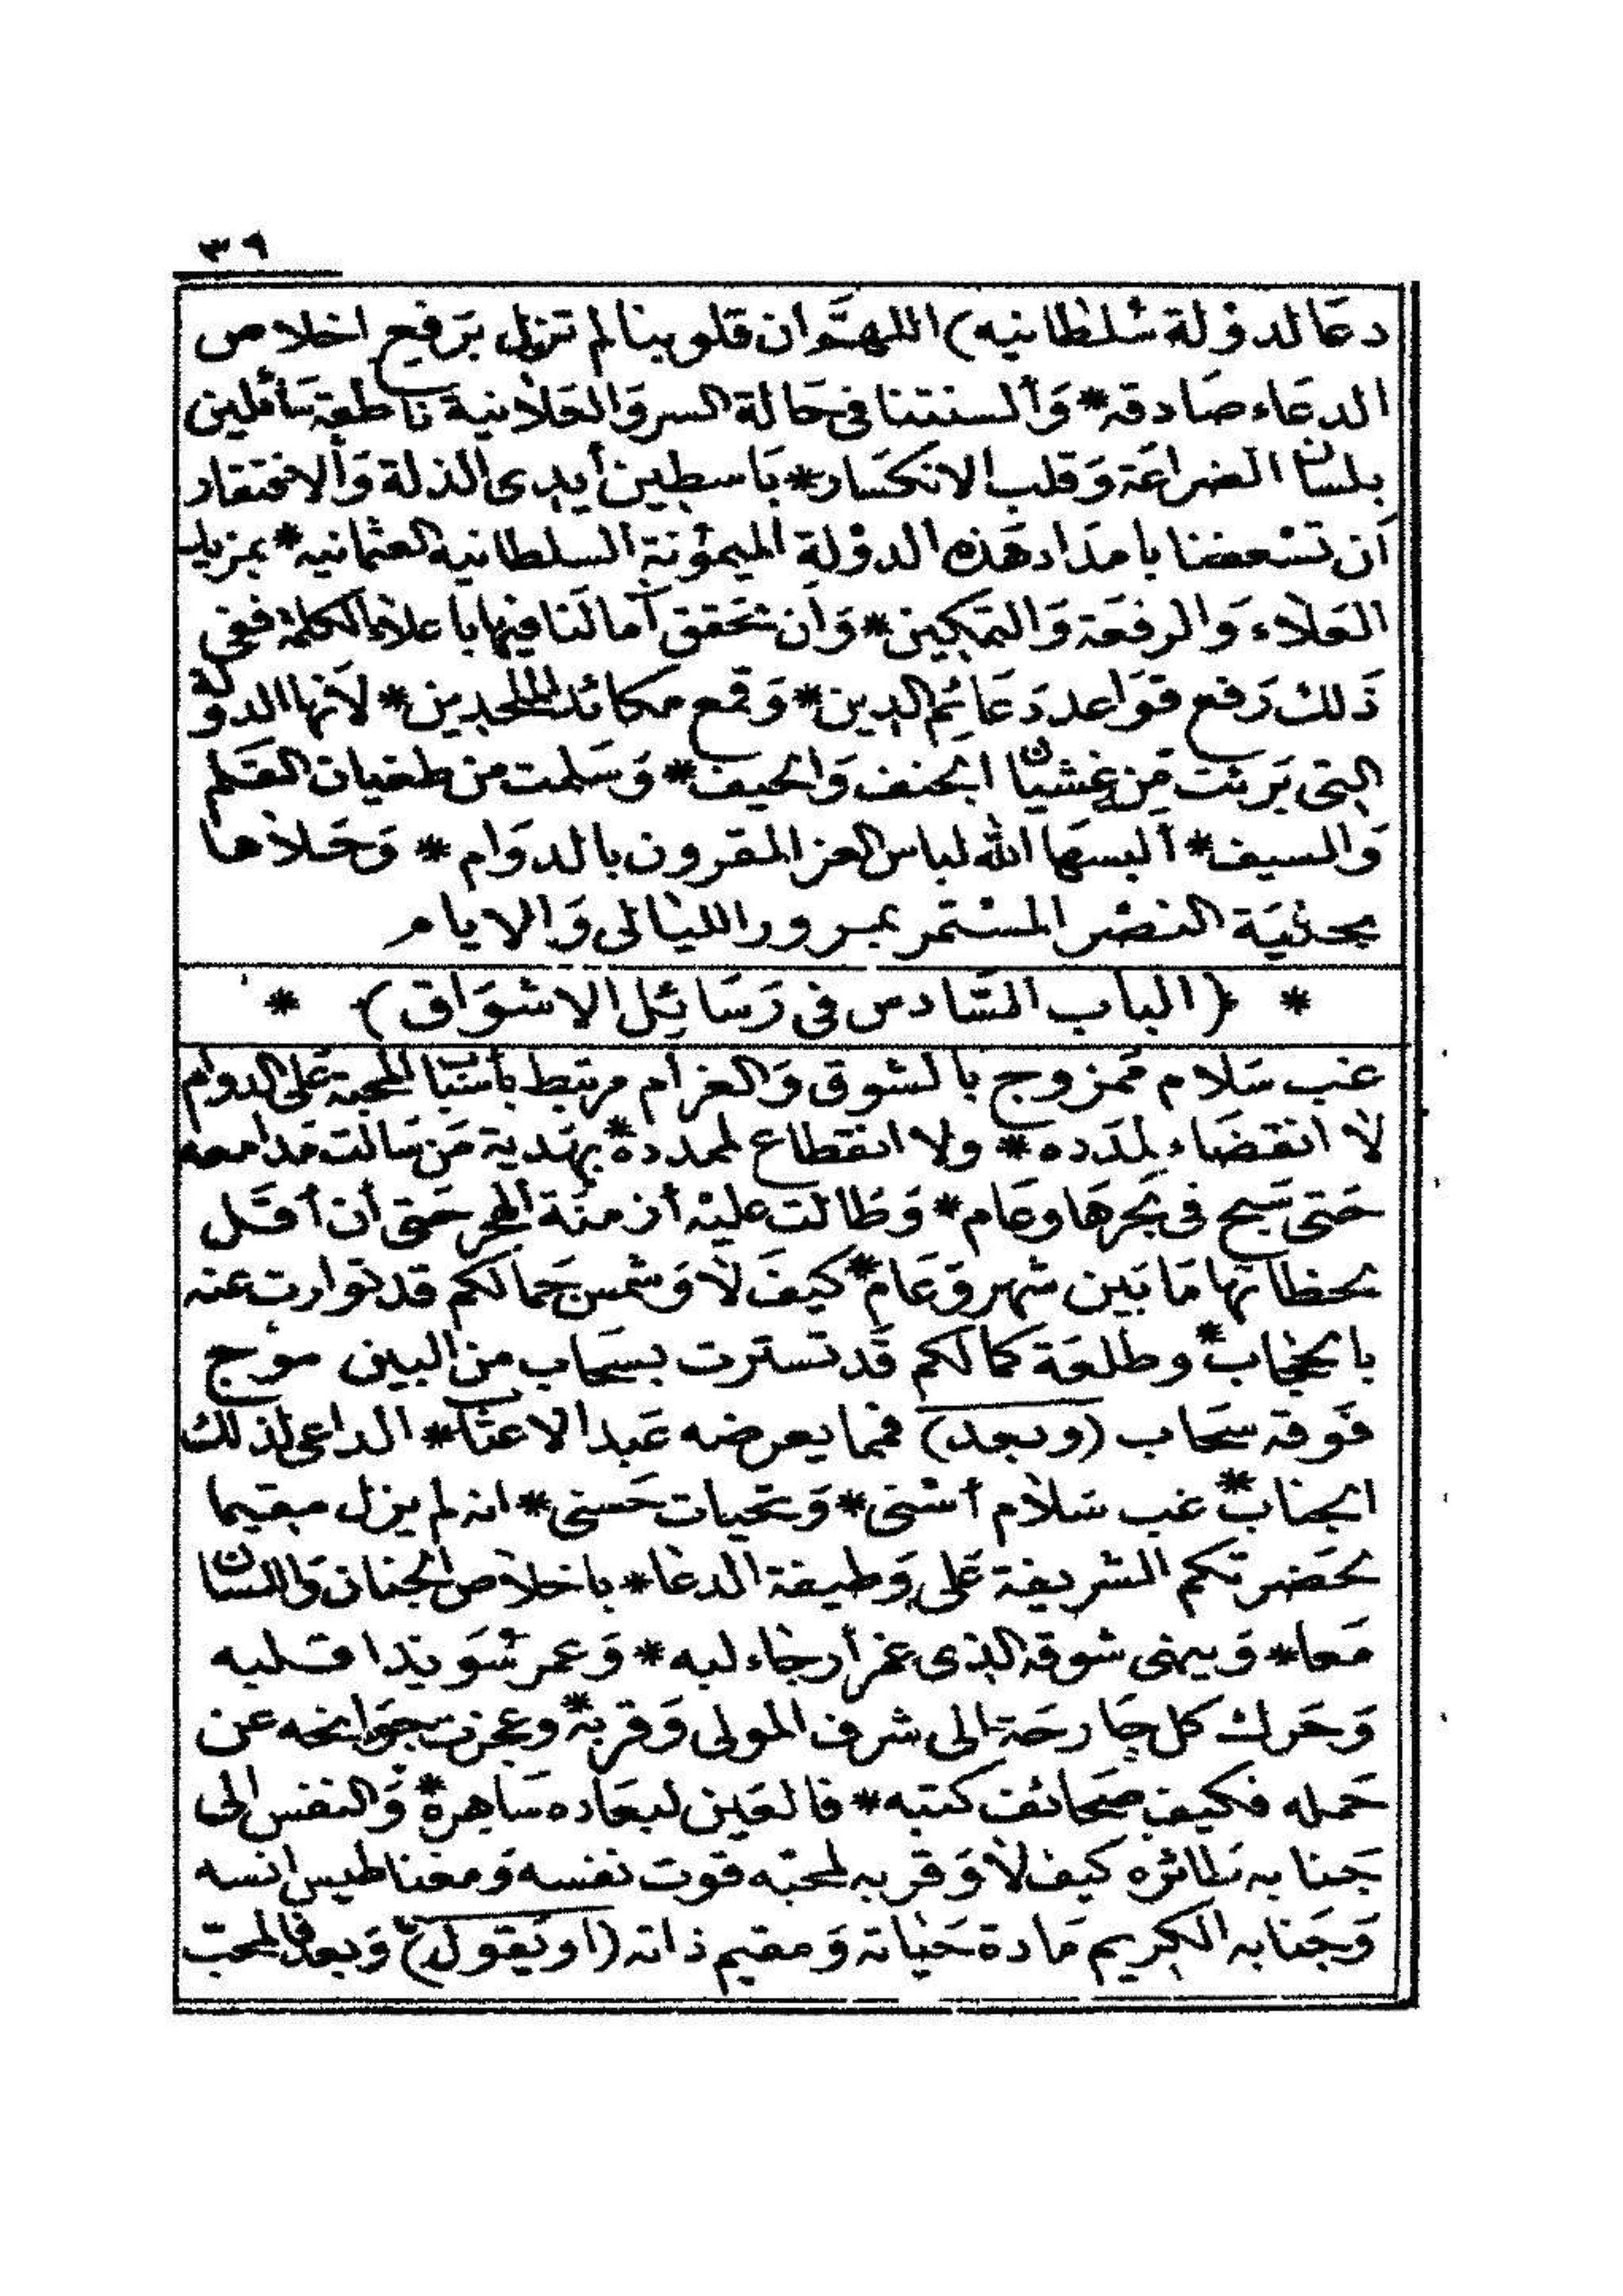 ٣٩
دعا لدولة سلطانيه) اللهم ان قلوبنا لم تزل برفيع اخلاص
الدعاء صادقه * وألسنتنا فى حالة السر والعلانية ناطقة سائلين
بلسان الضراعة وقلب الانكسار * باسطين أيدى الذلة والافتقار
أن تسعفنا بامداد هذه الدولة الميمونة السلطانية العثمانيه * بمزيد
العلاء والرفعة والتمكين * وأن تحقق آمالنا فيها باعلاء الكلمة ففى
ذلك رفع قواعد دعائم الدين * وقمع مكائد الملحدين * لأنها الدولة
التى برئت من غشيان الجنف والحيف * وسلمت من طغيان القلم
والسيف * ألبسها الله لباس العز المقرون بالدوام * وحلاها
بحلية النصر المستمر بمرور الليالى والايام
* (الباب السادس فى رسائل الاشواق) *
غب سلام ممزوج بالشوق والغرام مرتبط بأسباب المحبة على الدوام
لا انقضاء لمدده * ولا انقطاع لمدده * بهدية من سالت مدامعه
حتى سبح فى بحرها وعام * وطالت عليه أزمنة الهجر حتى أن أقل
لحظاتها ما بين شهر وعام * كيف لا وشمس جمالكم قد توارت عنه
بالحجاب * وطلعة كمالكم قد تسترت بسحاب من البين موج
فوقه سحاب (وبعد) فمما يعرضه عبد الاعتاب * الداعى لذلك
الجناب * غب سلام أسنى * وتحيات حسنى * انه لم يزل مقيما
لحضرتكم الشريفة على وظيفة الدعاء * باخلاص الجنان واللسان
معا * وينهى شوقه الذى عمر أرجاء لبه * وعمر سويدا قلبه
وحرك كل جارحة الى شرف المولى وقربه * وعجزت جوانحه عن
حمله فكيف صحائف كتبه * فالعين لبعاده ساهرة * والنفس الى
جنابه طائره كيف لا وقربه لمحبه قوت نفسه ومغناطيس انسه
وجنابه الكريم مادة حياته ومقيم ذاته (او يقول) وبعد فالمحب